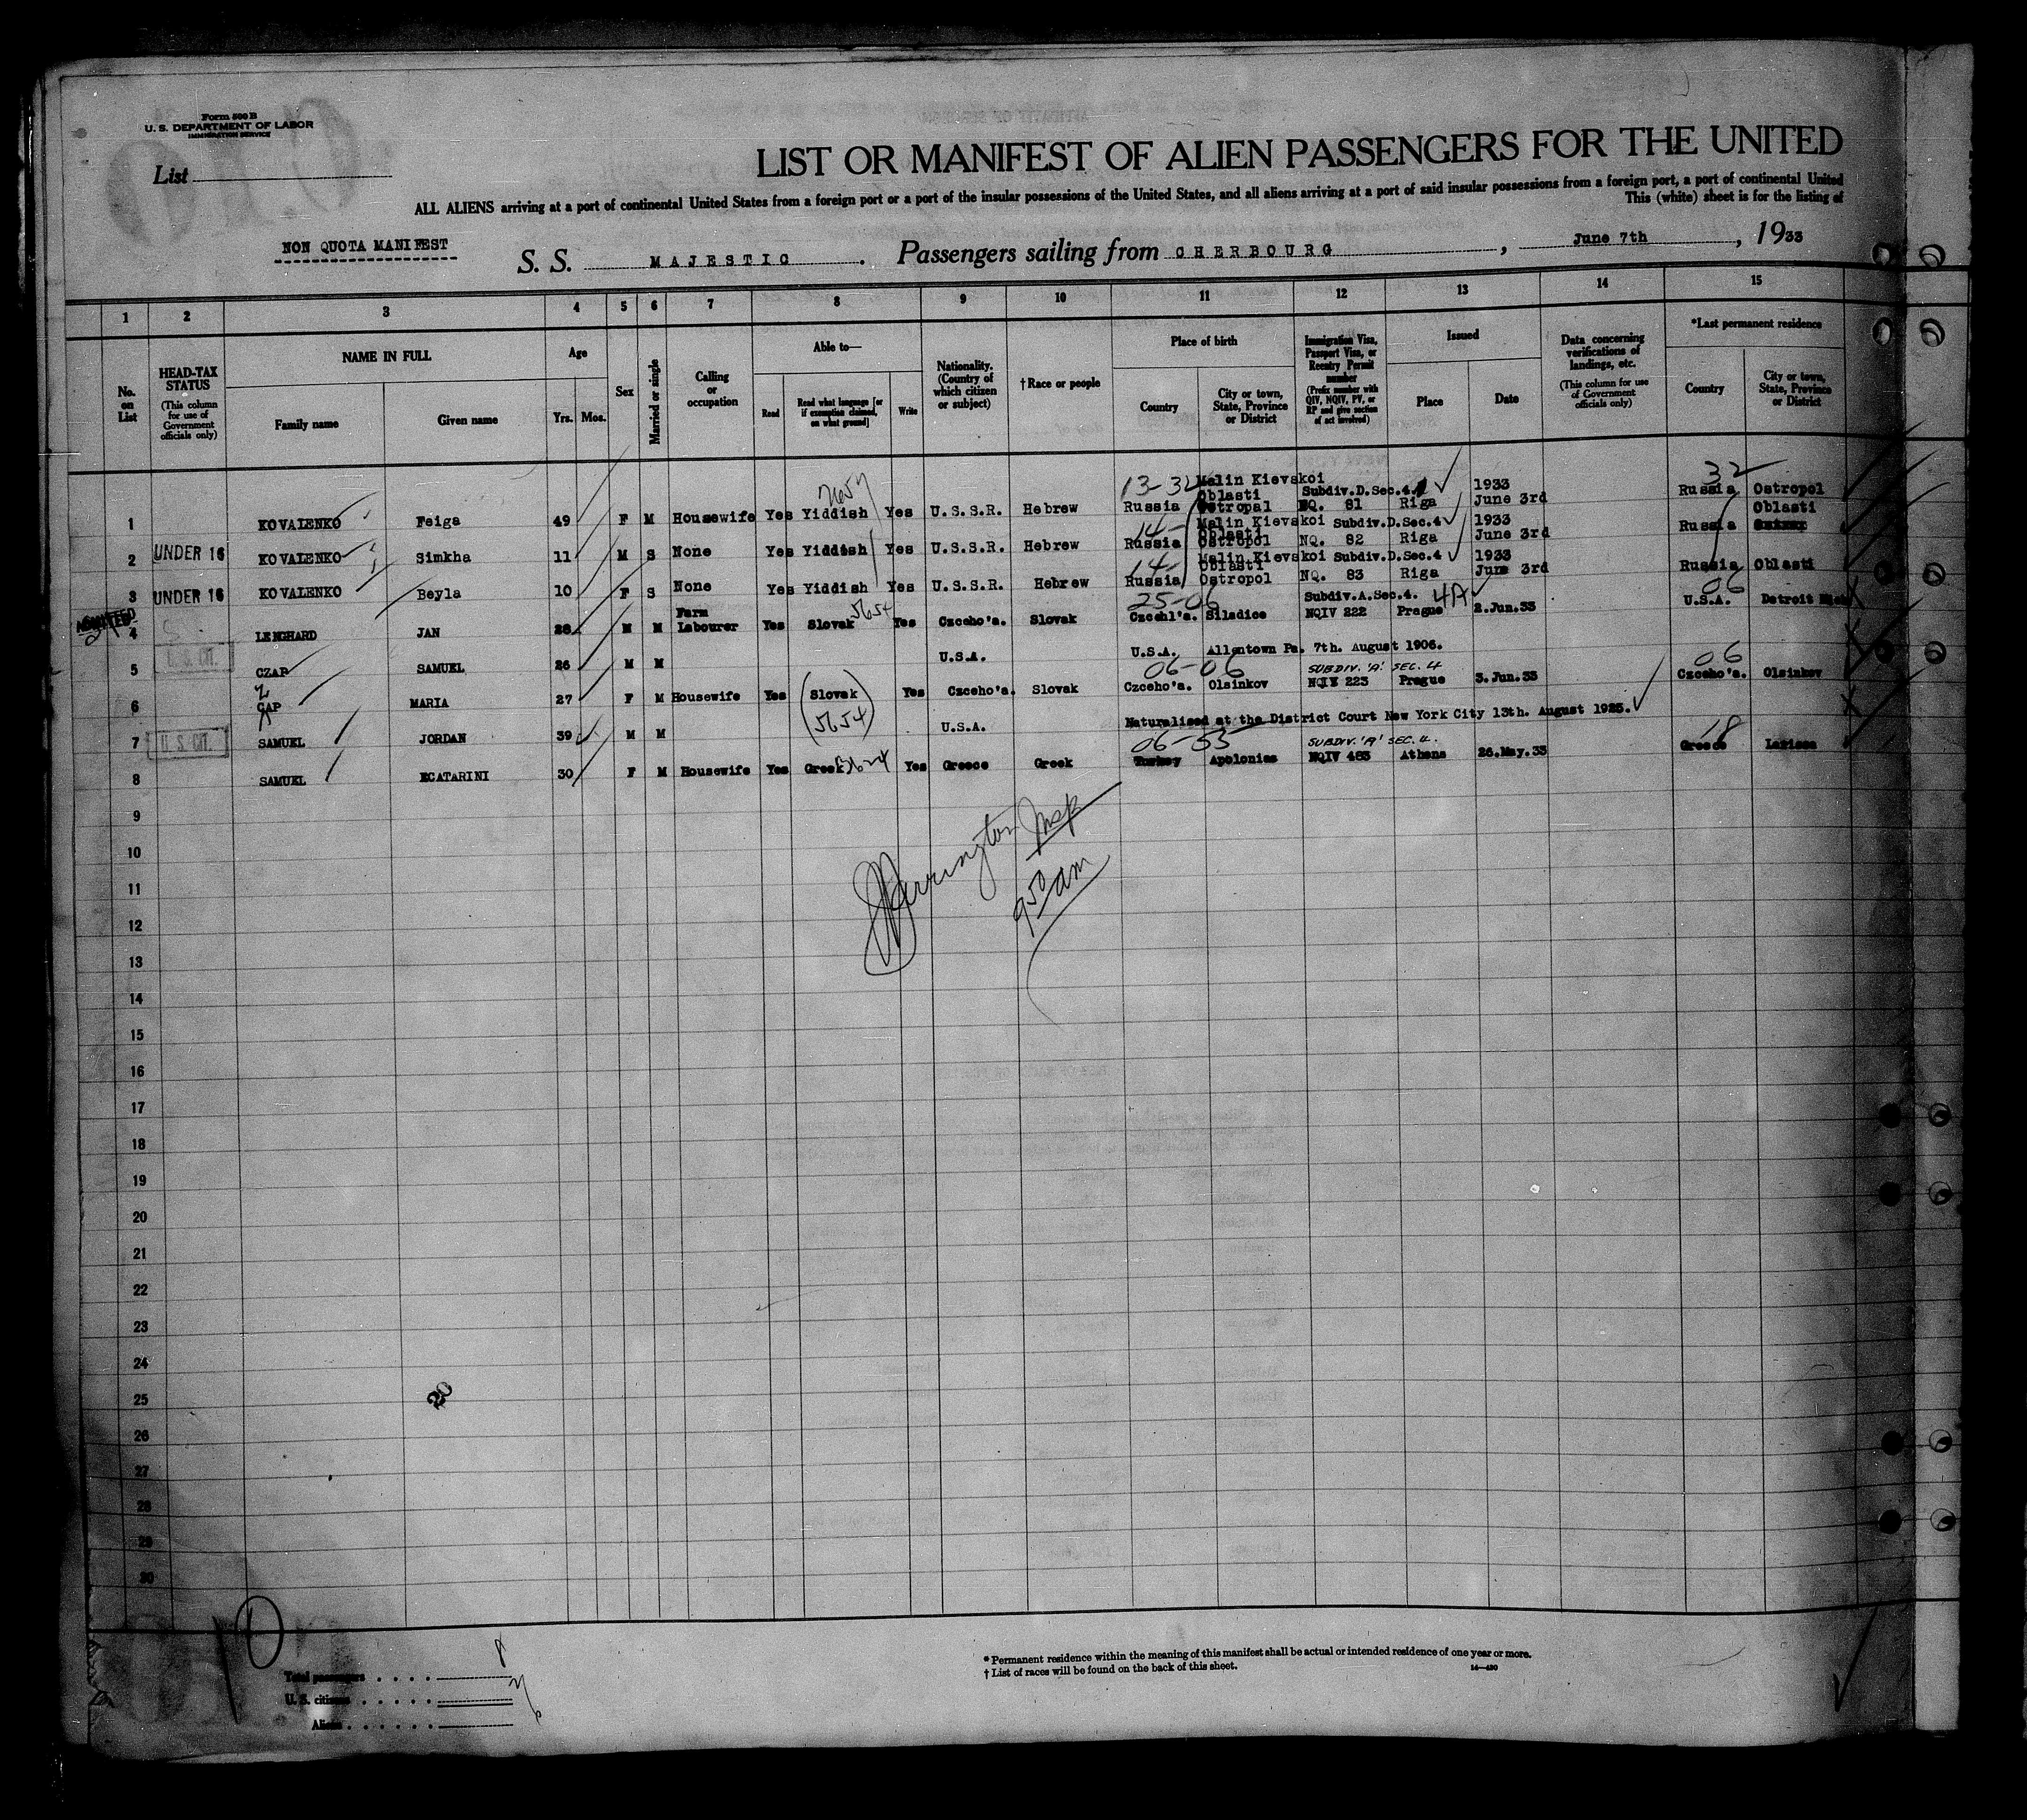 Form 500 B
U. S. DEPARTMENT OF LABOR
IMMIGRATION SERVICE
List
LIST OR MANIFEST OF ALIEN PASSENGERS FOR THE UNITED
ALL ALIENS arriving at a port of continental United States from a foreign port or a port of the insular possessions of the United States, and all aliens arriving at a port of said insular possessions from a foreign port, a port of continental United
This (white) sheet is for the listing of
NON QUOTA MANIFEST
S. S. MAJESTIC. Passengers sailing from CHERBOURG, June 7th, 1933
1 2 3 4 5 6 7 8 9 10 11 12 13 14 15
No. on List
HEAD-TAX STATUS
(This column for use of Government officials only)
NAME IN FULL
Family name
Given name
Age
Yrs. Mos.
Sex
Married or single
Calling or occupation
Able to—
Read
Read what language [or if exemption claimed, on what ground]
Write
Nationality. (Country of which citizen or subject)
†Race or people
Place of birth
Country
City or town, State, Province or District
Immigration Visa, Passport Visa, or Reentry Permit number
(Prefix number with QIV, NQIV, PV, or RP and give section of act involved)
Issued
Place
Date
Data concerning verifications of landings, etc.
(This column for use of Government officials only)
*Last permanent residence
Country
City or town, State, Province or District
13-32 Malin Kievskoi 32
Oblasti Subdiv.D.Sec.4. 1933
1 KOVALENKO Feiga 49 F M Housewife Yes Yiddish Yes U.S.S.R. Hebrew Russia Ostropol NQ. 81 Riga June 3rd Russia Ostropol
14- Malin Kievskoi Subdiv.D.Sec.4 1933 Oblasti
Oblasti
2 UNDER 16 KOVALENKO Simkha 11 M S None Yes Yiddish Yes U.S.S.R. Hebrew Russia Ostropol NQ. 82 Riga June 3rd Russia
14- Malin Kievskoi Subdiv.D.Sec.4 1933
Oblasti
3 UNDER 16 KOVALENKO Beyla 10 F S None Yes Yiddish Yes U.S.S.R. Hebrew Russia Ostropol NQ. 83 Riga June 3rd Russia Oblasti
ADMITTED 5654 25-06 Subdiv.A.Sec.4. 4A 06
4 LENGHARD JAN 28 M M Farm Labourer Yes Slovak Yes Czecho'a. Slovak Czechl'a. Siladice NQIV 222 Prague 2.Jun.33 U.S.A. Detroit Mich
5 U. S. CIT. CZAP SAMUEL 26 M M U.S.A. U.S.A. Allentown Pa. 7th. August 1906.
Z 06-06 SUBDIV. 'A' SEC. 4 06
6 CAP MARIA 27 F M Housewife Yes Slovak Yes Czecho'a. Slovak Czecho'a. Olsinkov NQIV 223 Prague 3.Jun.33 Czecho'a. Olsinkov
5654
7 U. S. CIT. SAMUEL JORDAN 39 M M U.S.A. Naturalised at the District Court New York City 13th. August 1925.
06-55 SUBDIV. 'A' SEC. 4. 18
8 SAMUEL ECATARINI 30 F M Housewife Yes Greek Yes Greece Greek Turkey Apolonias NQIV 483 Athens 26.May.33 Greece Larissa
9
10
11
12
13
14
15
16
17
18
19
20
21
22
23
24
25
26
27
28
29
30
Insp
9 50 am
20
Total passengers
U. S. citizens
Aliens
* Permanent residence within the meaning of this manifest shall be actual or intended residence of one year or more.
† List of races will be found on the back of this sheet.
14—430